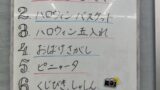 2. ハロウィンバスケット
3. ハロウィン玉入れ
4 おばけさがし
5 ピニャータ
6 くじびき しゃしん